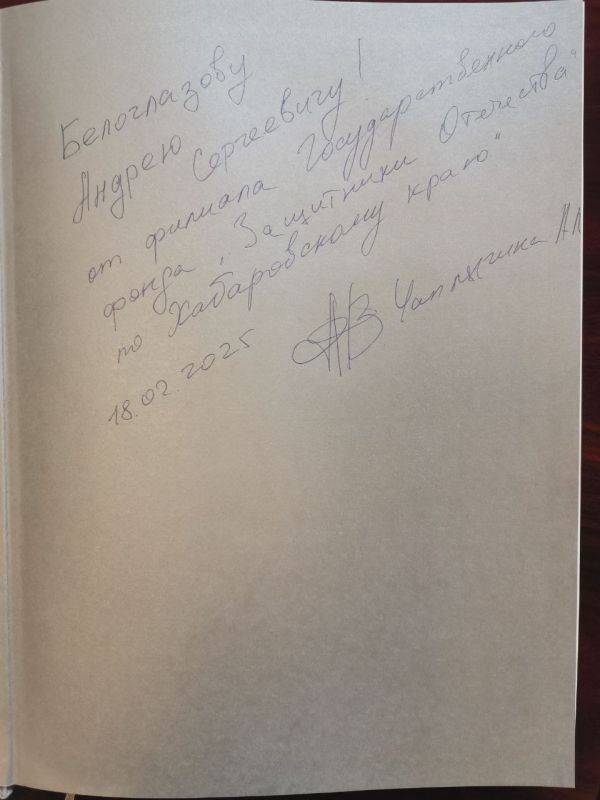 Белоглазову
Андрею Сергеевичу!
от филиала Государственного
фонда „Защитники Отечества"
по Хабаровскому краю"
18.02.2025